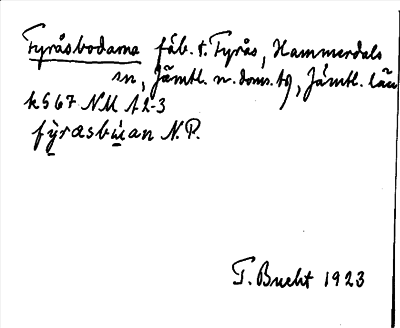 Fyråsbodarna fäb. t. Fyrås, Hammerdals
sn, Jämtl. n. doms. tg, Jämtl. län
k 567 NM 12-3
fyrasbuan N.P.
T. Bucht 1923